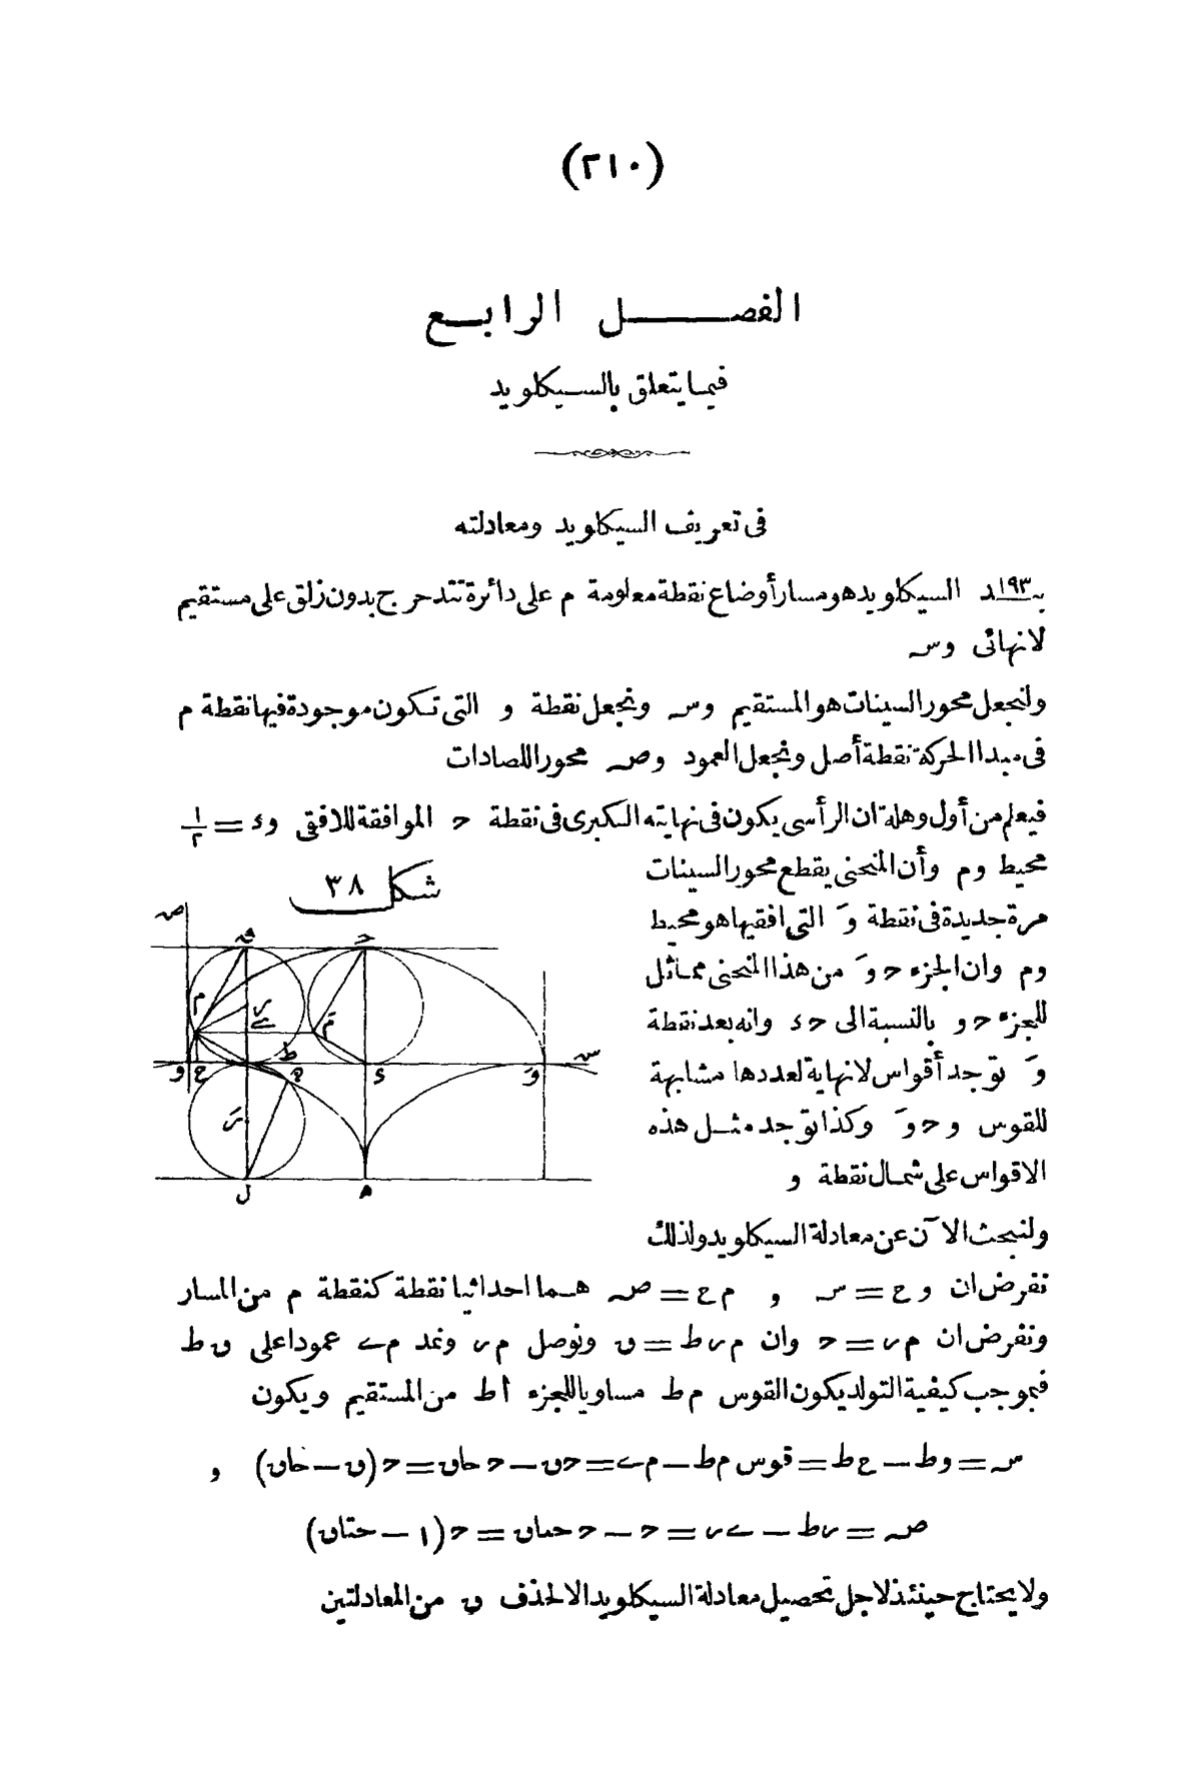 (٢١٠)
الفصـــل الرابـع
فيما يتعلق بالسيكلويد
فى تعريف السيكلويد ومعادلته
بـ١٩٣ـد السيكلويد هو مسار أوضاع نقطة معلومة م على دائرة تتدحرج بدون زلق على مستقيم
لانهائى وسـ
ولنجعل محور السينات هو المستقيم وسـ ونجعل نقطة و التى تكون موجودة فيها نقطة م
فى مبدا الحركة نقطة أصل ونجعل العمود وصـ محورا للصادات
فيعلم من أول وهلة ان الرأسى يكون فى نهايته الكبرى فى نقطة حـ الموافقة للافقى وء = ١/٢
محيط وم وأن المنحنى يقطع محور السينات
مرة جديدة فى نقطة وَ التى افقيها هو محيط
وم وان الجزء حـ وَ من هذا المنحنى مماثل
للجزء حـ و بالنسبة الى حـ ء وانه بعد نقطة
وَ توجد أقواس لانهاية لعددها مشابهة
للقوس و حـ وَ وكذا توجد مثل هذه
الاقواس على شمال نقطة و
شكل ٣٨
صـ
حـ
م
مَ
ى
ط
سـ
و
ع
ء
وَ
ل
ولنبحث الآن عن معادلة السيكلويد ولذلك
نفرض ان وع = سـ و مع = صـ هما احداثيا نقطة كنقطة م من المسار
ونفرض ان مر = حـ وان مرط = ق ونوصل مر ونمد مى عمودا على ق ط
فبموجب كيفية التولد يكون القوس مط مساويا للجزء أط من المستقيم ويكون
سـ = وط – ع ط = قوس مط – مى = حـ ق – حـ حاق = حـ (ق – حاق) و
صـ = رط – ىر = حـ – حـ حتاق = حـ (١ – حتاق)
ولا يحتاج حينئذ لاجل تحصيل معادلة السيكلويد الا لحذف ق من المعادلتين